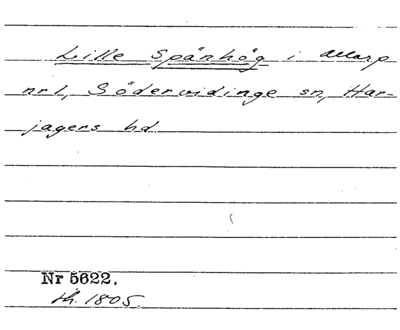 Lille Spånhög i Allarp
nr 1, Södervidinge sn, Har-
jagers hd
Nr 5622.
th. 1805.